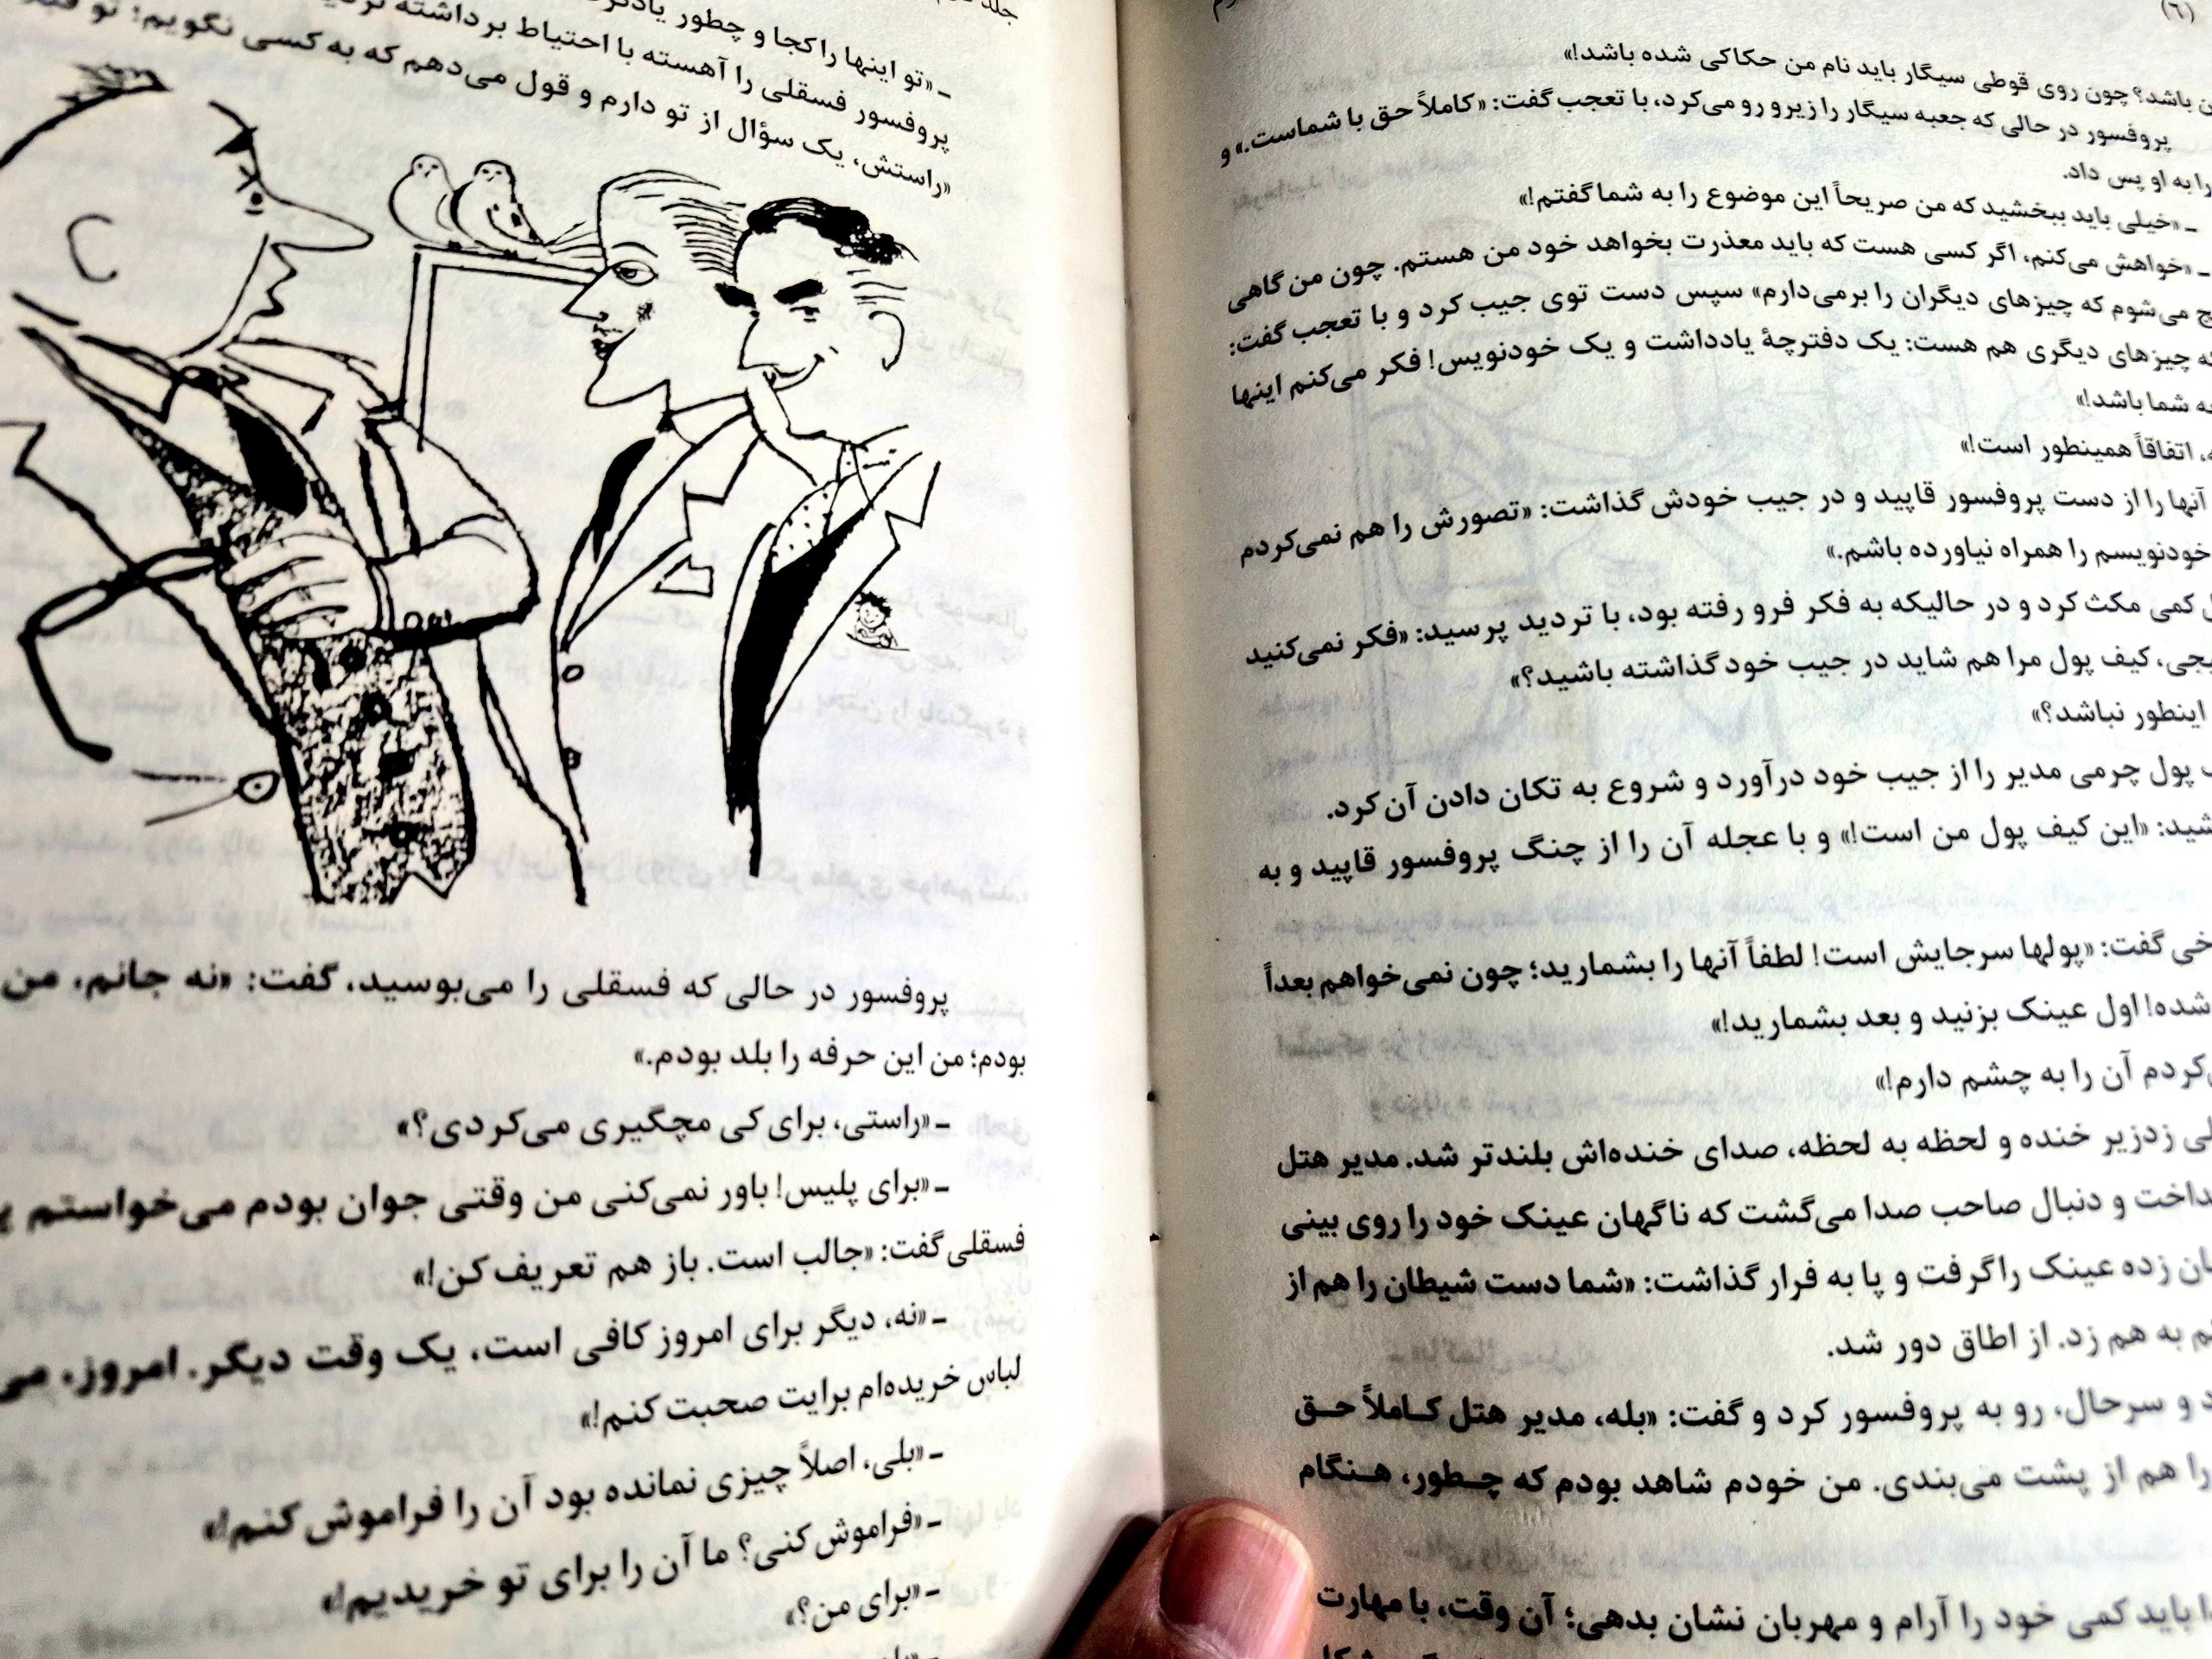 (٦)
باشد؟ چون روی قوطی سیگار باید نام من حکاکی شده باشد!»
پروفسور در حالی که جعبه سیگار را زیرو رو می‌کرد، با تعجب گفت: «کاملاً حق با شماست.» و
را به او پس داد.
ـ «خیلی باید ببخشید که من صریحاً این موضوع را به شما گفتم!»
ـ «خواهش می‌کنم، اگر کسی هست که باید معذرت بخواهد خود من هستم. چون من گاهی
می‌شوم که چیزهای دیگران را برمی‌دارم» سپس دست توی جیب کرد و با تعجب گفت:
چیزهای دیگری هم هست: یک دفترچهٔ یادداشت و یک خودنویس! فکر می‌کنم اینها
شما باشد!»
اتفاقاً همینطور است!»
آنها را از دست پروفسور قاپید و در جیب خودش گذاشت: «تصورش را هم نمی‌کردم
خودنویسم را همراه نیاورده باشم.»
کمی مکث کرد و در حالیکه به فکر فرو رفته بود، با تردید پرسید: «فکر نمی‌کنید
کیف پول مرا هم شاید در جیب خود گذاشته باشید؟»
اینطور نباشد؟»
پول چرمی مدیر را از جیب خود درآورد و شروع به تکان دادن آن کرد.
«این کیف پول من است!» و با عجله آن را از چنگ پروفسور قاپید و به
گفت: «پولها سرجایش است! لطفاً آنها را بشمارید؛ چون نمی‌خواهم بعداً
شده! اول عینک بزنید و بعد بشمارید!»
آن را به چشم دارم!»
زدزیر خنده و لحظه به لحظه، صدای خنده‌اش بلندتر شد. مدیر هتل
و دنبال صاحب صدا می‌گشت که ناگهان عینک خود را روی بینی
زده عینک را گرفت و پا به فرار گذاشت: «شما دست شیطان را هم از
به هم زد. از اطاق دور شد.
و سرحال، رو به پروفسور کرد و گفت: «بله، مدیر هتل کاملاً حق
را هم از پشت می‌بندی. من خودم شاهد بودم که چطور، هنگام
باید کمی خود را آرام و مهربان نشان بدهی؛ آن وقت، با مهارت
جلد
ـ «تو اینها را کجا و چطور
پروفسور فسقلی را آهسته با احتیاط برداشته
«راستش، یک سؤال از تو دارم و قول می‌دهم که به کسی نگویم: تو
پروفسور در حالی که فسقلی را می‌بوسید، گفت: «نه جانم، من
بودم؛ من این حرفه را بلد بودم.»
ـ «راستی، برای کی مچگیری می‌کردی؟»
ـ «برای پلیس! باور نمی‌کنی من وقتی جوان بودم می‌خواستم
فسقلی گفت: «جالب است. باز هم تعریف کن!»
ـ «نه، دیگر برای امروز کافی است، یک وقت دیگر. امروز،
لباس خریده‌ام برایت صحبت کنم!»
ـ «بلی، اصلاً چیزی نمانده بود آن را فراموش کنم!»
ـ «فراموش کنی؟ ما آن را برای تو خریدیم!»
ـ «برای من؟»